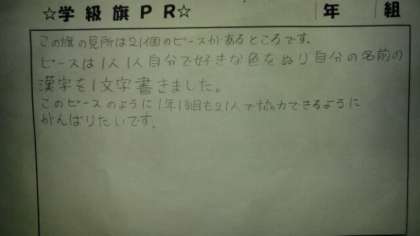 ☆学級旗PR☆ 年 組
この旗の見所は21個のピースがあるところです。
ピースは1人1人自分で好きな色をぬり自分の名前の
漢字を1文字書きました。
このピースのように1年1組も21人で協力できるように
がんばりたいです。